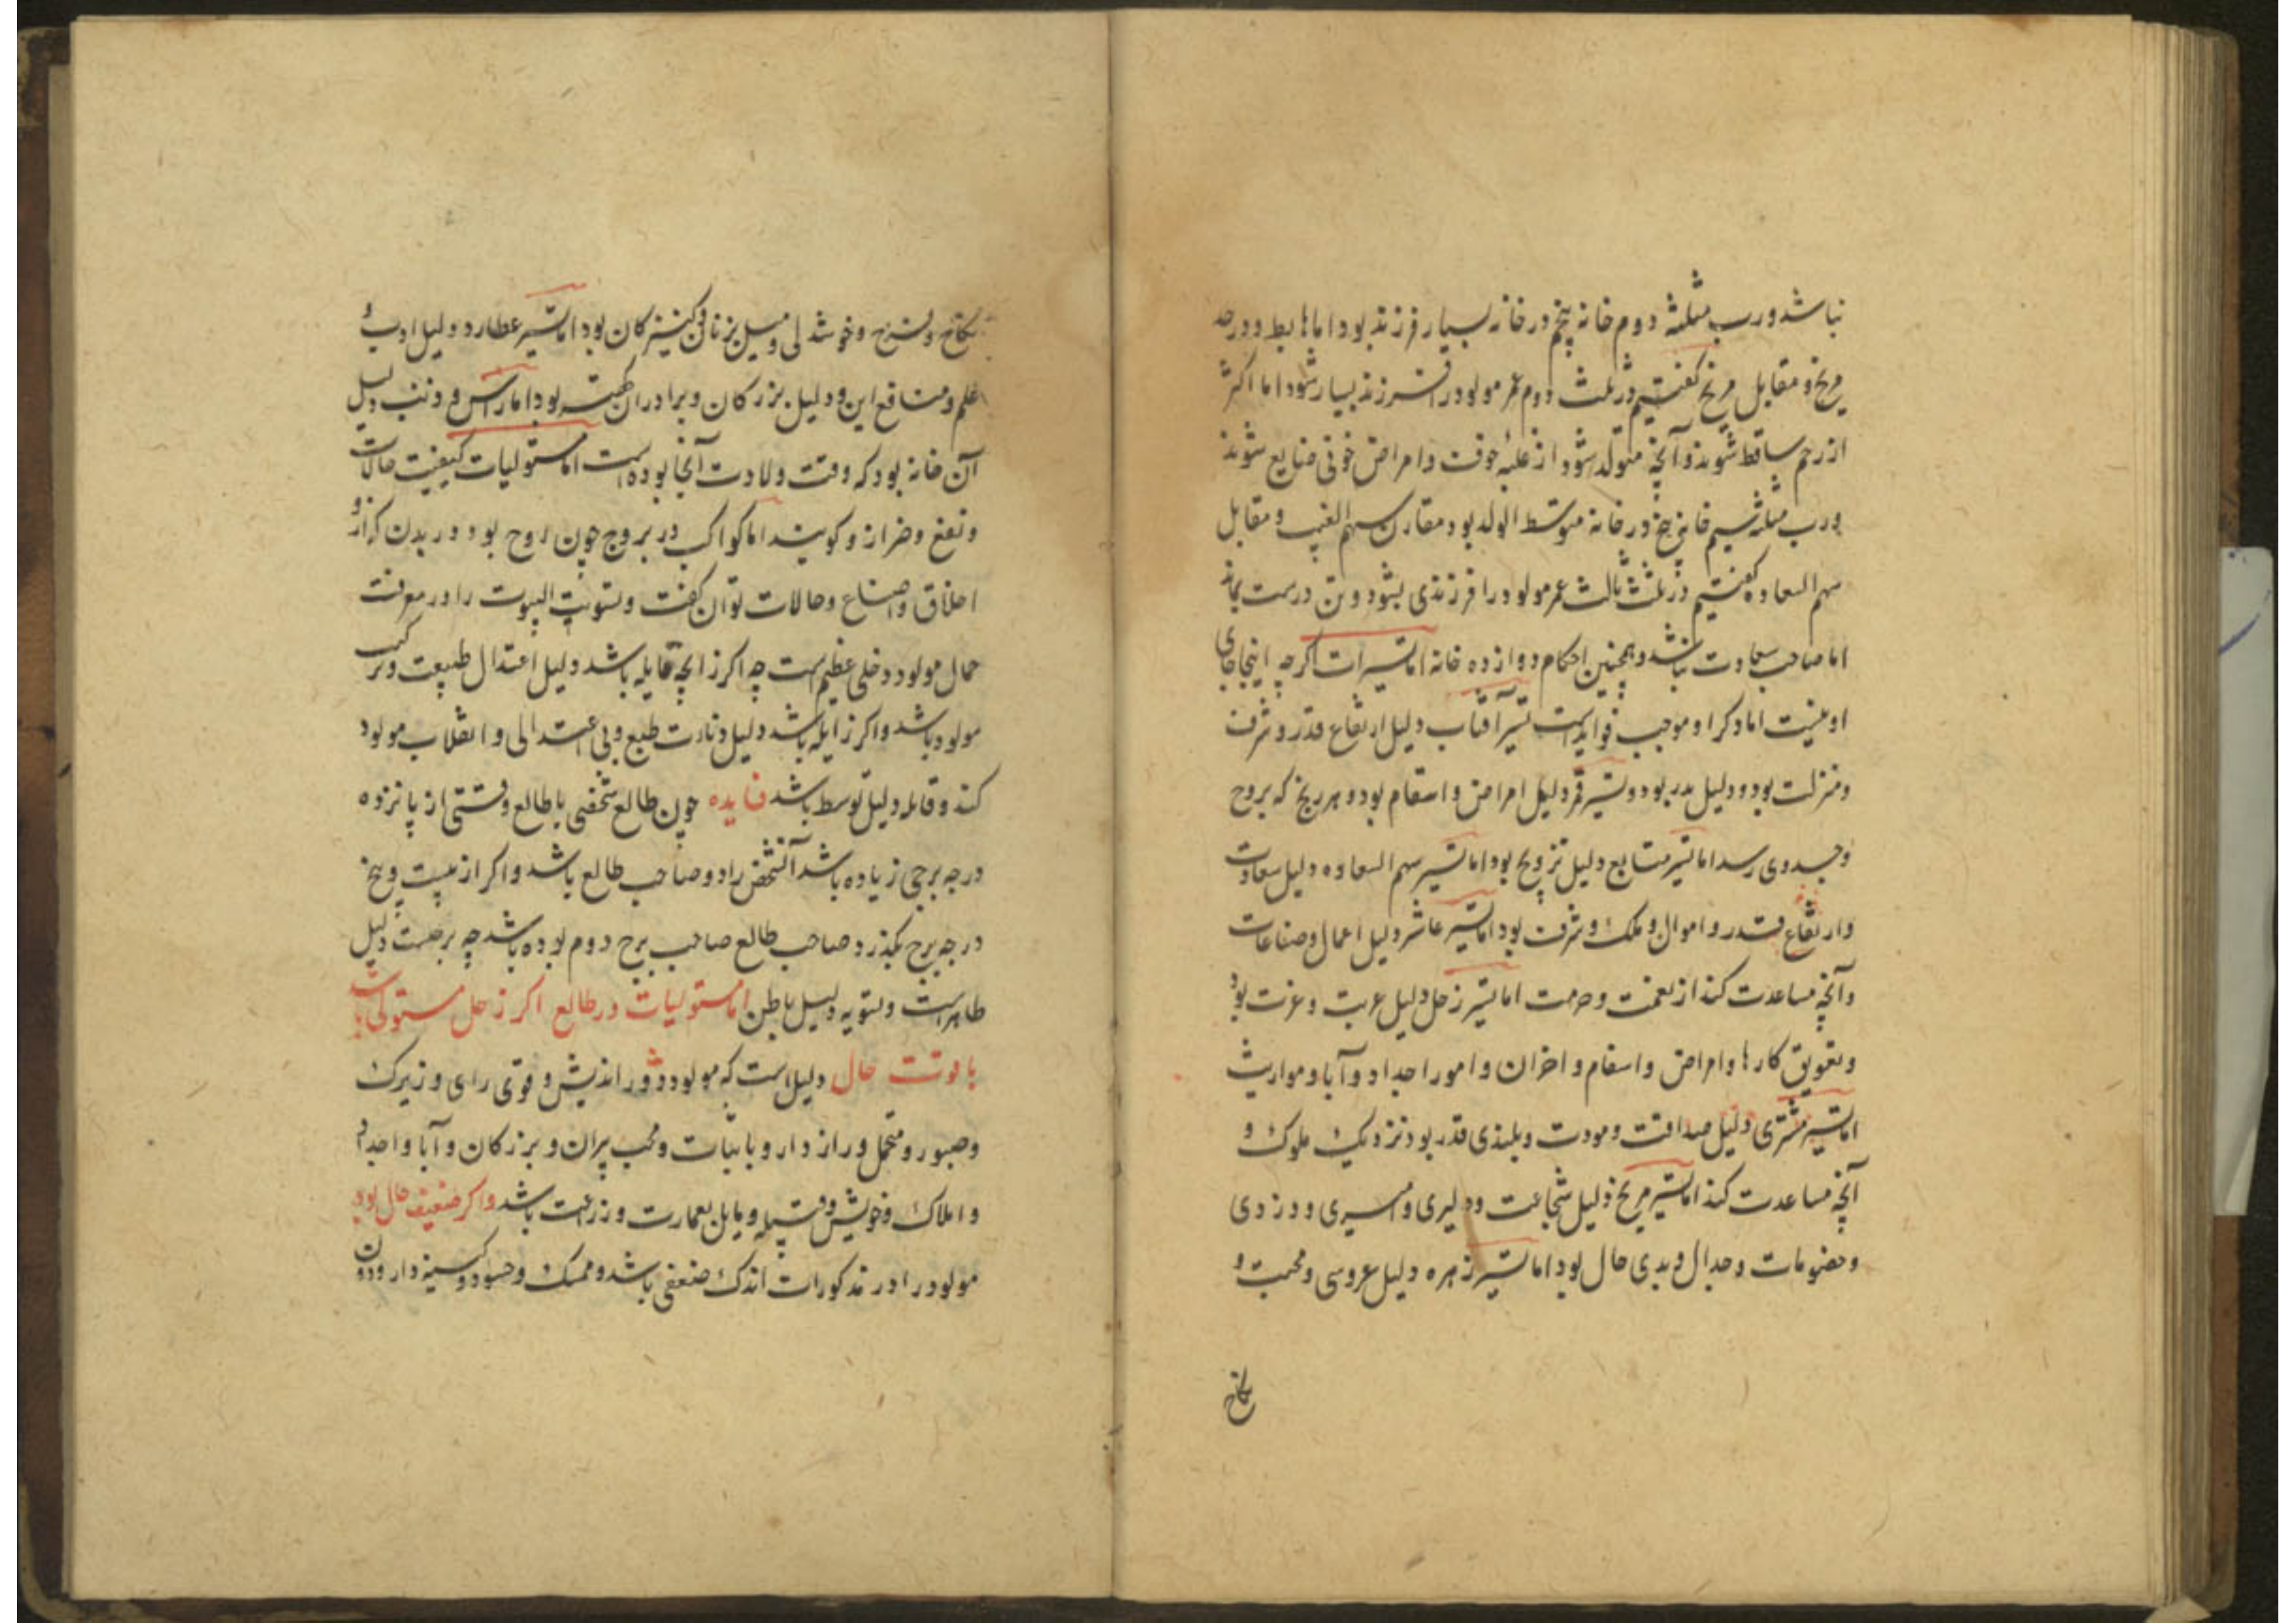 نباشد و رب مثلثه دوم خانه پنجم در خانه بسیار فرزند بود اما هابط و در حد
مریخ و مقابل مریخ گفتیم در ثلث دوم عمر مولود را فرزند بسیار شود اما اکثر
از رحم ساقط شوند و آنچه متولد شود از غلبهٔ حرقت و امراض خونی ضایع شوند
و رب مثلثه سیم خانه پنج در خانه متوسط الولد بود مقارن سهم الغیب و مقابل
سهم السعاده گفتیم در ثلث ثالث عمر مولود را فرزندی بشود و تن درست بماند
اما صاحب سعادت نباشد و همچنین احکام دوازده خانه اما تسییرات اگرچه اینجا جای
او نیست اما ذکر او موجب فوایدست تسییر آفتاب دلیل ارتفاع قدر و شرف
و منزلت بود و دلیل پدر بود و تسییر قمر دلیل امراض و اسقام بود و هر رنج که بروح
و جسد وی رسد اما تسییر متابع دلیل تزویج بود اما تسییر سهم السعاده دلیل سعادت
و ارتفاع قدر و اموال و ملک و شرف بود اما تسییر عاشر دلیل اعمال و صناعات
و آنچه مساعدت کند از نعمت و حرمت اما تسییر زحل دلیل غربت و عزت بود
و تعویق کارها و امراض و اسقام و احزان و امور اجداد و آبا و مواریث
اما تسییر مشتری دلیل صداقت و مودت و بلندی قدر بود نزدیک ملوک و
آنچه مساعدت کند اما تسییر مریخ دلیل شجاعت و دلیری و اسیری و دزدی
و خصومات و جدال و بدی حال بود اما تسییر زهره دلیل عروسی و محبت و
نکاح
نکاح و فرح و خوشدلی و میل بزنان و کنیزکان بود اما تسییر عطارد دلیل ادب و
علم و منافع این و دلیل بزرکان و برادران کهتر بود اما راس و ذنب دلیل
آن خانه بود که وقت ولادت آنجا بوده است اما مستولیات کیفیت حالات
و نفع و ضر ازو کویند اما کواکب در بروج چون روح بود در بدن که ازو
اخلاق و اصناع و حالات توان گفت و تسویت البیوت را در معرفت
حال مولود دخلی عظیم است چه اکر زایچه قایله باشد دلیل اعتدال طبیعت و ترکیب
مولود باشد و اکر زایله باشد دلیل دنائت طبع و بی اعتدالی و انقلاب مولود
کند و قابله دلیل توسط باشد فایده چون طالع شخصی یا طالع وقتی از پانزده
درجه برجی زیاده باشد آنشخص را دو صاحب طالع باشد و اکر از بیست و پنج
درجه برج بگذرد صاحب طالع صاحب برج دوم بوده باشد چه برجیت دلیل
ظاهر است و تسویه دلیل باطن اما مستولیات در طالع اکر زحل مستولی باشد
با قوت حال دلیل است که مولود دور اندیش و قوی رای و زیرک
و صبور و متحمل و راز دار و با ثبات و محب پیران و بزرکان و آبا و اجداد
و املاک و خویش و قبیله و مایل بعمارت و زراعت باشد و اکر ضعیف حال بود
مولود را در مذکورات اندک ضعفی باشد و ممسک و حسود و کینه دار و دون